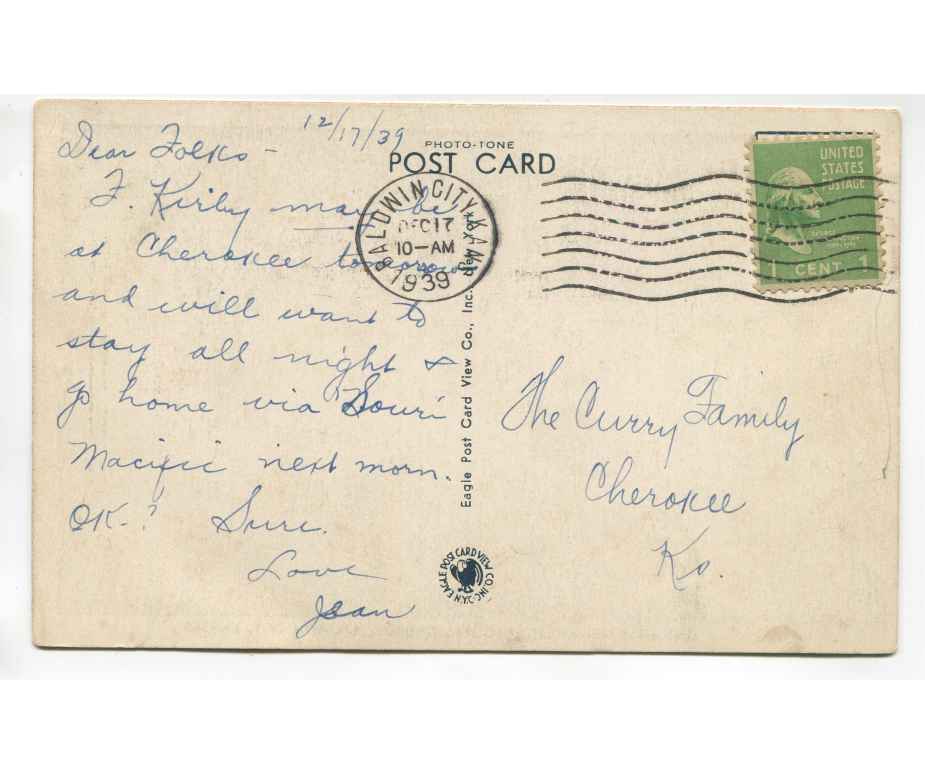 12/17/39
Dear Folks -
F. Kirby may be
at Cherokee tomorrow
and will want to
stay all night &
go home via Souri
Macific next morn.
OK-? Sure.
Love
Jean
PHOTO-TONE
POST CARD
BALDWIN CITY, KANS.
DEC 17
10-AM
1939
UNITED
STATES
POSTAGE
1 CENT 1
Eagle Post Card View Co., Inc. New York
The Curry Family
Cherokee
Ks.
AN EAGLE POST CARD VIEW CO. INC. N.Y.